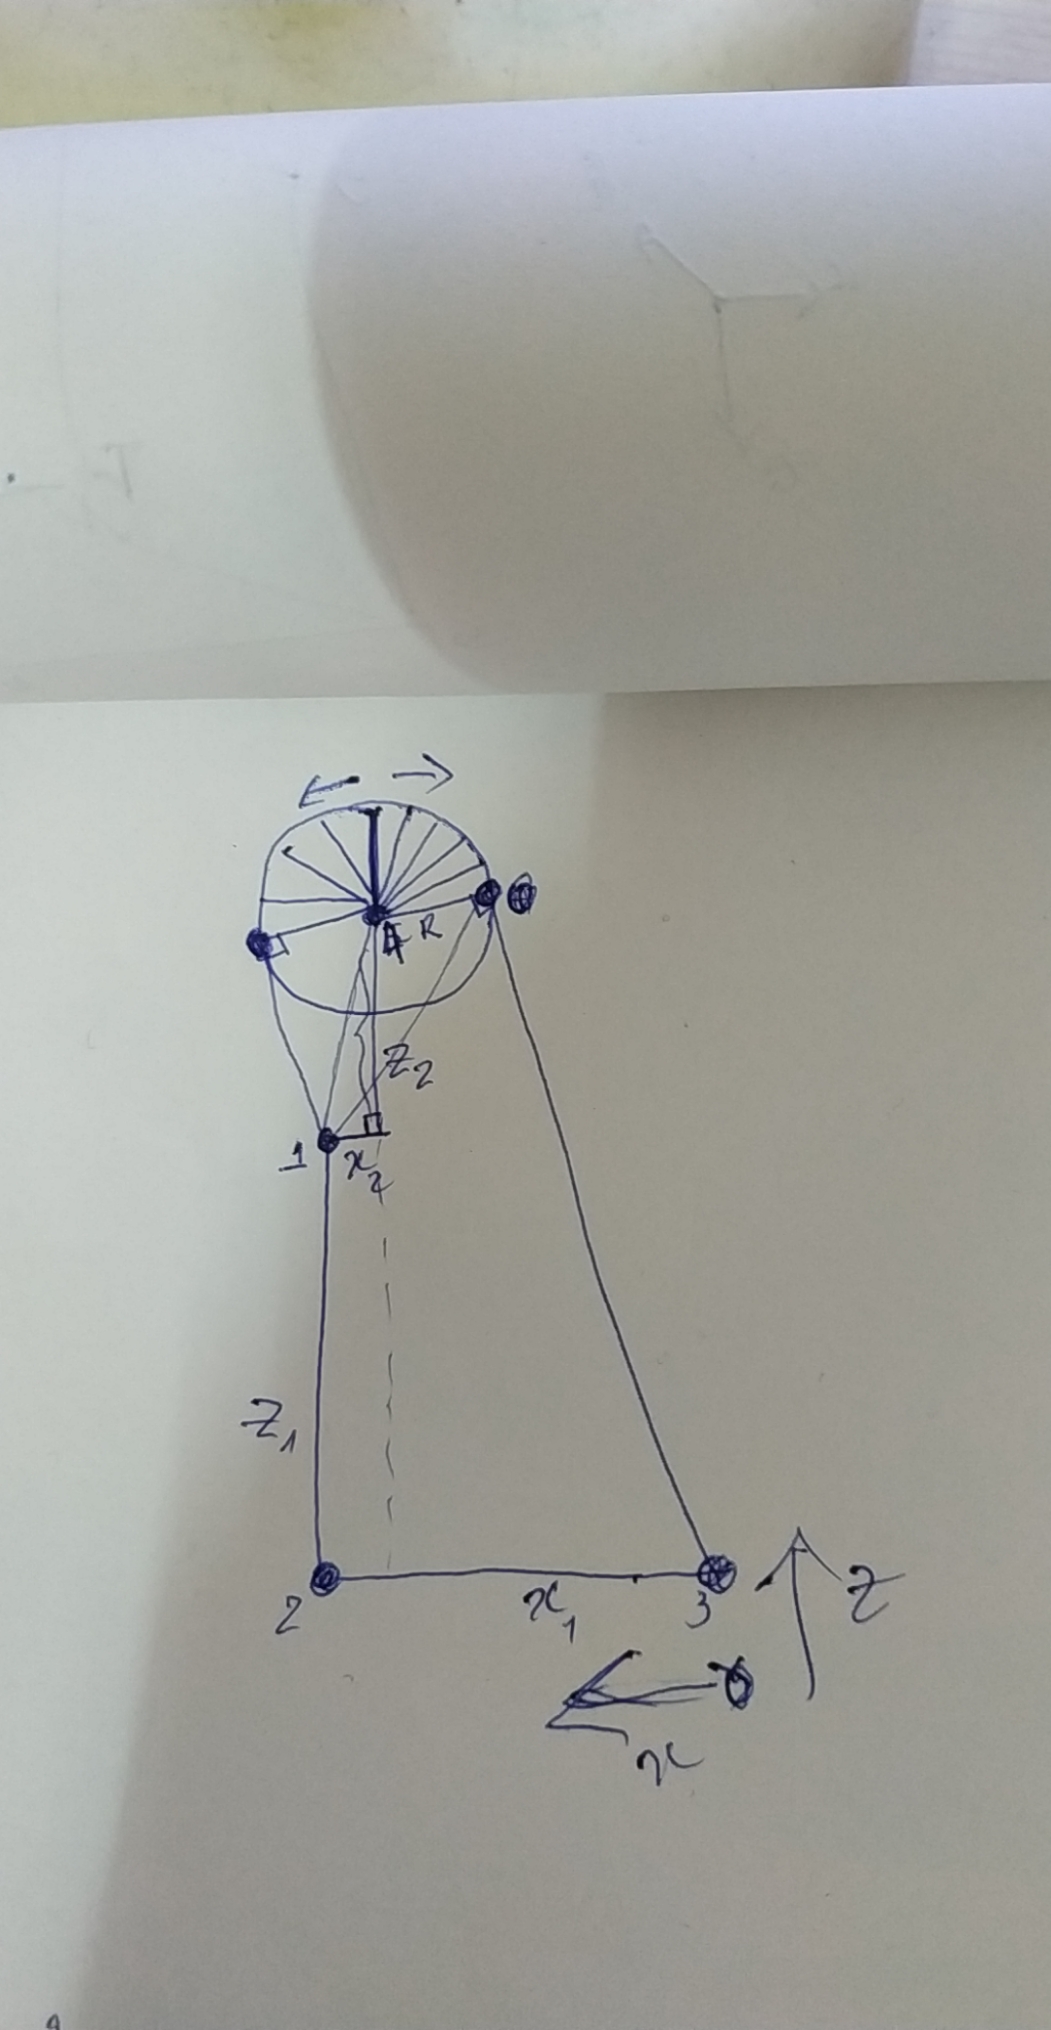 4 R
z₂
1 x₂
z₁
2 x₁ 3
z
x